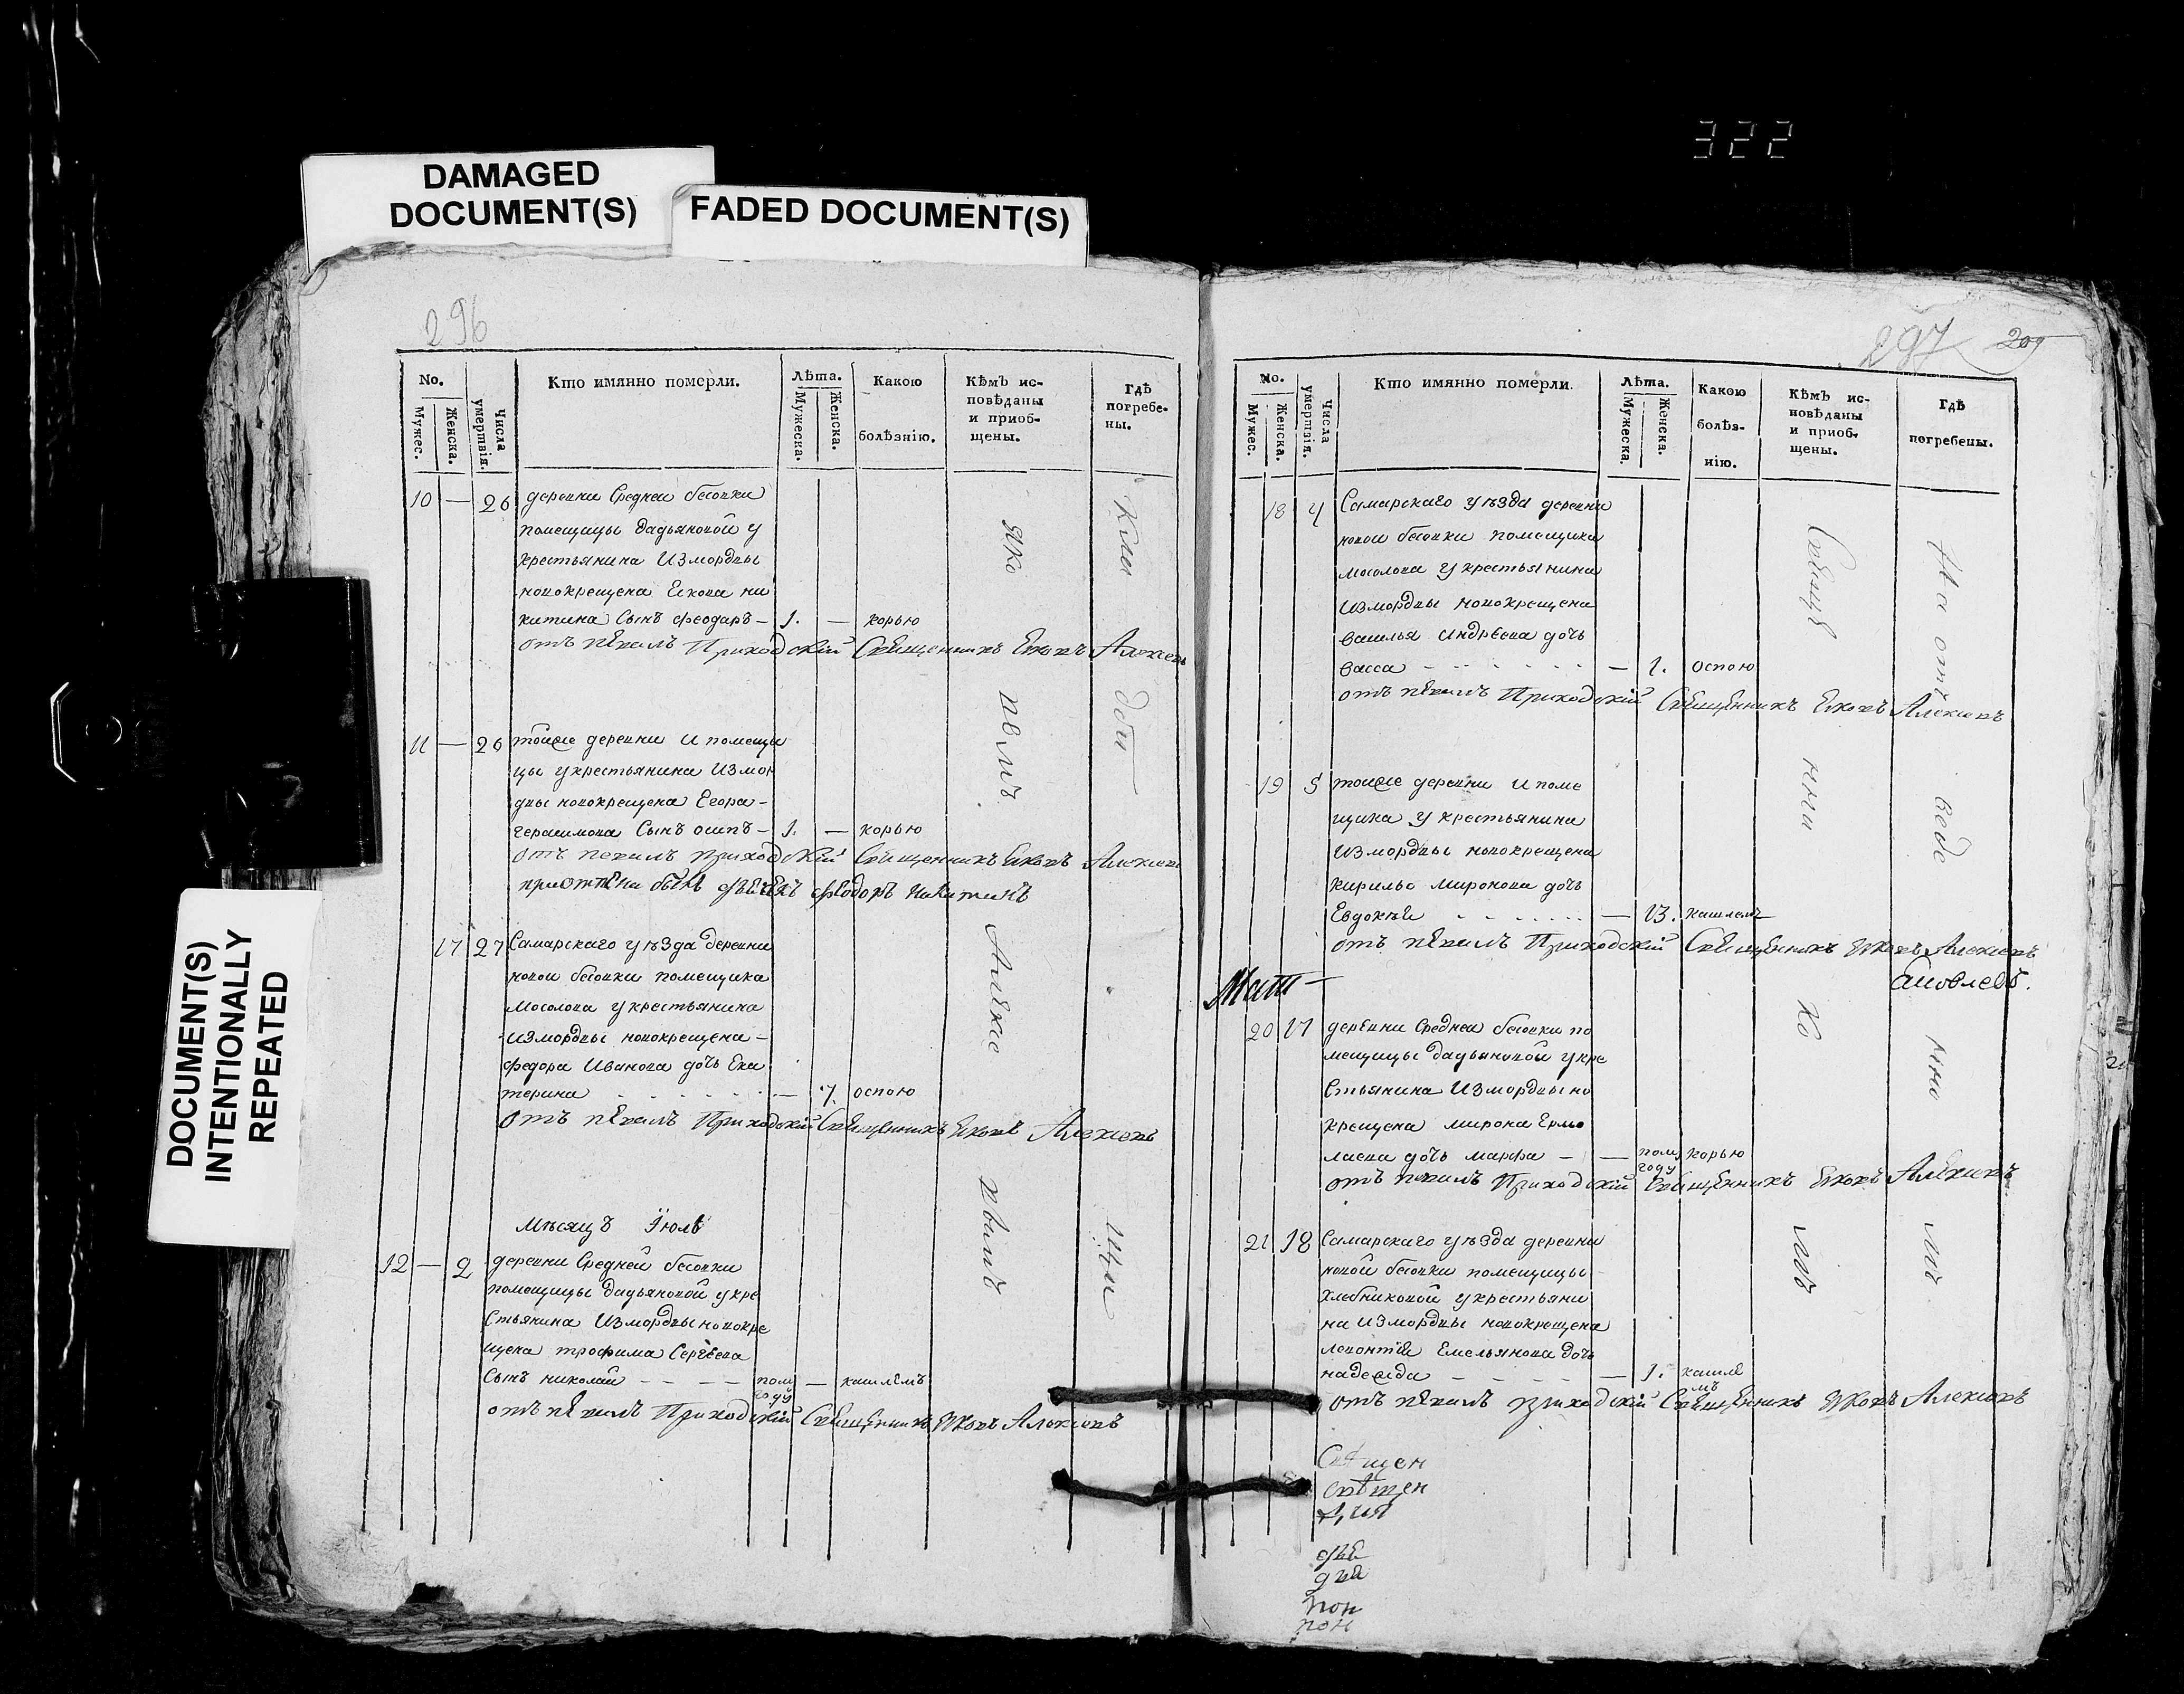 322
DAMAGED
DOCUMENT(S)
FADED DOCUMENT(S)
DOCUMENT(S)
INTENTIONALLY
REPEATED
296
No.
Мужес.
Женска.
Числа умертвія.
Кто имянно померли.
Лѣта.
Мужеска.
Женска.
Какою
болѣзнію.
Кѣмъ ис-
повѣданы
и приоб-
щены.
Гдѣ
погребе-
ны.
10 — 26 деревни Средней бесовки
помещицы дадьяновой у
крестьянина Измордвы
новокрещена Екова ни
китина Сынъ феодаръ — 1. — корью
отъ певалъ Приходскій Священникъ Яковъ Алексевъ
11 — 26 тойже деревни И помещи
цы укрестьянина Измор
двы новокрещена Егора —
герасимова Сынъ осипъ — 1. — корью
отъ певалъ приходскій Священникъ Яковъ Алексевъ
Федоръ Никитинъ
17 27 Самарскаго уъзда деревни
новой бесовки помещика
Мосолова укрестьянина
измордвы новокрещена —
федора Иванова дочь Ека
терина — 7. оспою
отъ певалъ Приходскій Священникъ Яковъ Алексевъ
Мъсяцъ Іюль
12 — 2 деревни Средней бесовки
помещицы дадьяновой укре
Стьянина Измордвы новокре
щена трофима Сергеева
Сынъ николай — — — — полу
году — кашлемъ
отъ певалъ Приходскій Священникъ Яковъ Алексевъ
297 209
No.
Мужес.
Женска.
Числа умертвія.
Кто имянно померли.
Лѣта.
Мужеска.
Женска.
Какою
болѣз-
нію.
Кѣмъ ис-
повѣданы
и приоб-
щены.
Гдѣ
погребены.
18 4 Самарскаго уъзда деревни
новой бесовки помещика
мосолова укрестьянина
измордвы новокрещена
василья Андреева дочь
васса — 1. оспою
отъ певалъ Приходскій Священникъ Яковъ Алексевъ
19 5 тойже деревни И поме
щика укрестьянина
Измордвы новокрещена
кирилы миронова дочь
Евдокея — 13. кашлемъ
отъ певалъ Приходскій Священникъ Яковъ Алексевъ
20 17 деревни Средней бесовки по
мещицы дадьяновой укре
Стьянина Измордвы но
крещена мирона Ермо
лаева дочь марфа — — полу
году корью
отъ певалъ Приходскій Священникъ Яковъ Алексевъ
21 18 Самарскаго уъзда деревни
новой бесовки помещицы
хлебниковой укрестьяни
на измордвы новокрещена
леонтия Емельянова дочь
надежда — — — — — 1. кашле
мъ
отъ певалъ приходскій Священникъ Яковъ Алексевъ